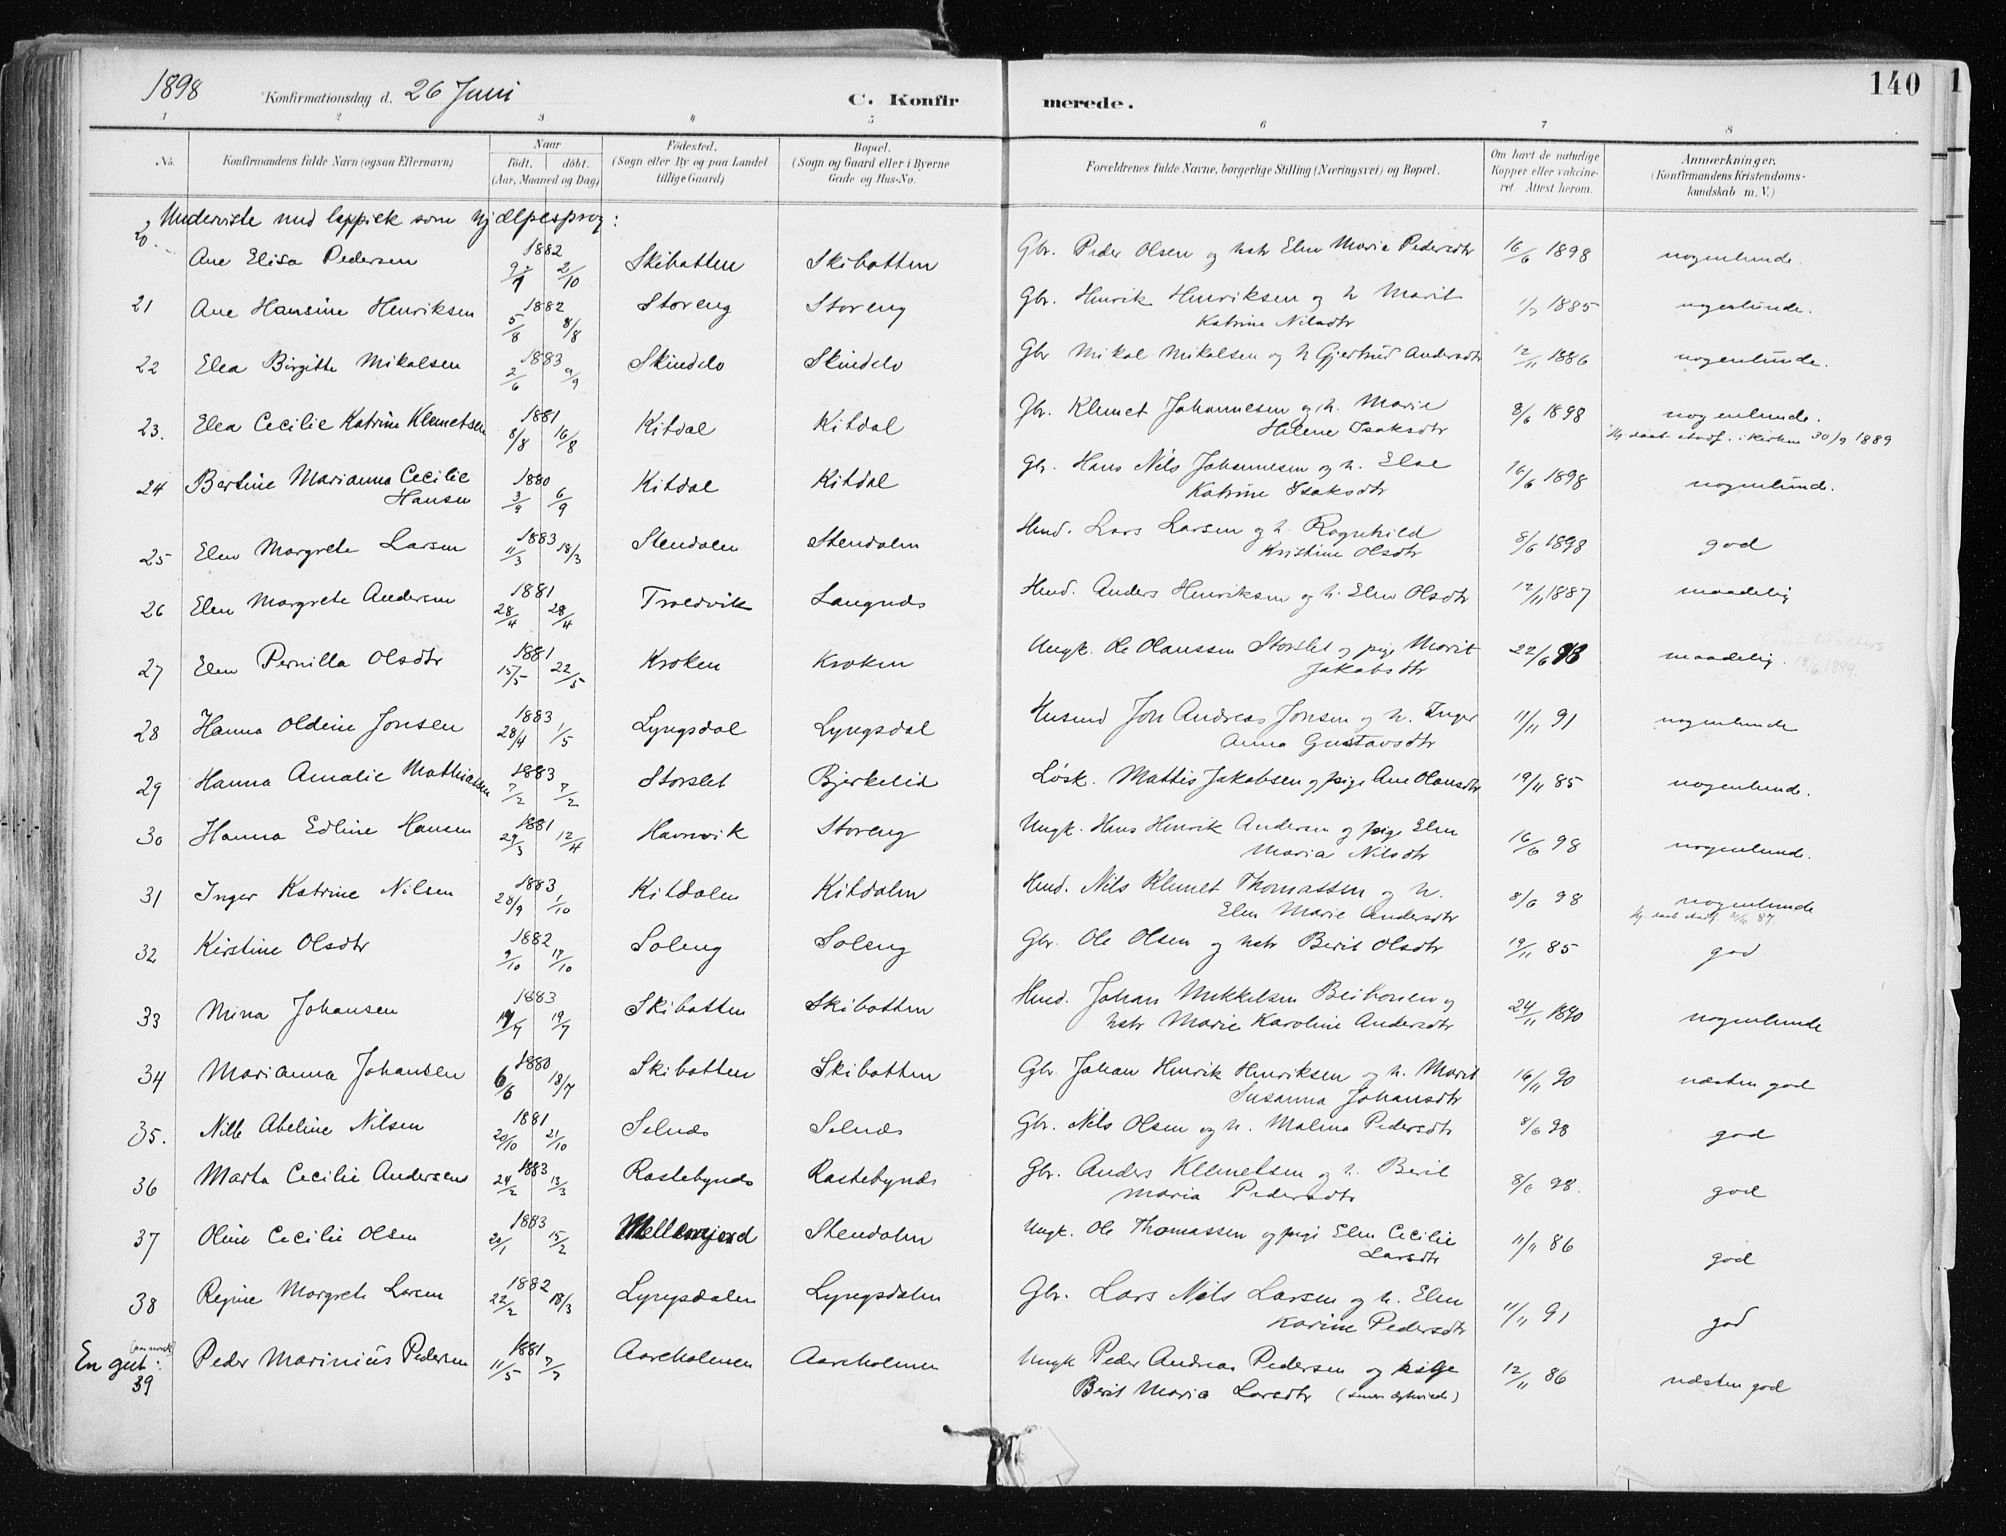 1898 Konfirmationsdag d. 26 Juni C. Konfirmerede. 140
1 2 3 4 5 6 7 8
No. Konfirmandens fulde Navn (ogsaa Efternavn) Naar født. døbt. (Aar, Maaned og Dag) Fødested. (Sogn eller By og paa Landet tillige Gaard) Bopæl. (Sogn og Gaard eller i Byerne Gade og Hus-No. Forældrenes fulde Navne, borgerlige Stilling (Næringsvei) og Bopæl. Om havt de naturlige Kopper eller vakcineret Attest herom. Anmærkninger. (Konfirmandens Kristendomskundskab m. V.)
Underviste med lappisk som hjælpesprog:
20. Ane Elisa Pedersen 1882 9/9 2/10 Skibotten Skibotten Gbr. Peder Olsen og hstr Elen Maria Pedersdtr 16/6 1898 nogenlunde.
21 Ane Hansine Henriksen 1882 5/8 8/8 Storeng Storeng Gbr. Henrik Henriksen og h Marit Katrine Nilsdtr 1/7 1885 nogenlunde.
22 Elea Birgitte Mikalsen 1883 2/6 9/9 Skindelv Skindelv Gbr Mikal Mikalsen og h Gjertrud Andersdtr 12/11 1886 nogenlunde.
23. Elea Cecilie Katrine Klemetsen 1881 8/8 16/8 Kitdal Kitdal Gbr. Klemet Johannesen og h. Marie Helene Isaksdtr 8/6 1898 nogenlunde.
Hj. daab stadf. i kirken 30/9 1889
24 Bertine Marianna Cecilie Hansen 1880 3/9 6/9 Kitdal Kitdal Gbr. Hans Nils Johannesen og h. Elae Katrine Isaksdtr 16/6 1898 nogenlunde.
25 Elen Margrete Larsen 1883 11/3 18/3 Stendalen Stendalen Hmd. Lars Larsen og h. Ragnhild Kristine Olsdtr 8/6 1898 god
26 Elen Margrete Andersen 1881 28/4 28/4 Troldvik Langnds Hmd. Anders Henriksen og h. Elen Olsdtr 12/11 1887 maadelig
27 Elen Pernilla Olsdtr 1881 15/5 22/5 Kroken Kroken Ungk. Ole Olaussen Storslet og pige Marit Jakobsdtr 22/6 98 maadelig. 18/6 1899.
28 Hanna Oldine Jonsen 1883 28/4 1/5 Lyngsdal Lyngsdal Husmd Jon Andreas Jonsen og h. Inger Anna Gustavsdtr 11/11 91 nogenlunde
29 Hanna Amalie Mathiassen 1883 7/2 7/2 Storslet Bjerkelid Løsk. Mattis Jakobsen og pige Ane Olausdtr 19/11 85 nogenlunde.
30 Hanna Edline Hansen 1881 29/3 12/4 Havnnvik Storeng Ungk. Hans Henrik Andersen og pige Elen Maria Nilsdtr 16/6 98 nogenlunde.
31 Inger Katrine Nilsen 1883 28/9 1/10 Kitdalen Kitdalen Hmd. Nils Klemet Thomassen og h. Elen Marie Andersdtr 8/6 98 nogenlunde
32 Kirstine Olsdtr 1882 9/10 17/10 Soleng Soleng Gbr. Ole Olsen og hstr Berit Olsdtr 19/11 85 god
33 Mina Johansen 1883 14/7 19/7 Skibotten Skibotten Hmd. Johan Mikkelsen og hstr Marie Karoline Andersdtr 24/11 1890 nogenlunde
34 Marianna Johansen 1880 6/6 18/7 Skibotten Skibotten Gbr. Johan Henrik Henriksen og h. Marit Susanna Johansdtr 16/11 90 næsten god
35. Nille Abeline Nilsen 1881 20/10 21/10 Selnds Selnds Gbr. Nils Olsen og h. Malena Pedersdtr 8/6 98 god
36 Marta Cecilie Andersen 1883 24/2 13/3 Rastebynds Rastebynds Gbr. Anders Klemetsen og h. Berit Maria Pedersdtr 8/6 98. god
37 Oline Cecilie Olsen 1883 20/1 15/2 Stendalen Ungk. Ole Thomassen og pige Elen Cecilie Larsdtr 11/11 86 god
38 Regine Margrete Larsen 1882 22/2 18/3 Lyngsdalen Lyngsdalen Gbr. Lars Nils Larsen og h. Elen Karine Pedersdtr 11/11 91 god
En gut: (paa norsk)
39 Peder Marinius Pedersen 1881 11/5 7/7 Aareholmen Aareholmen Ungk Peder Andreas Pedersen og pige Berit Maria Larsdtr (senere ægteviede) 12/11 86 næsten god